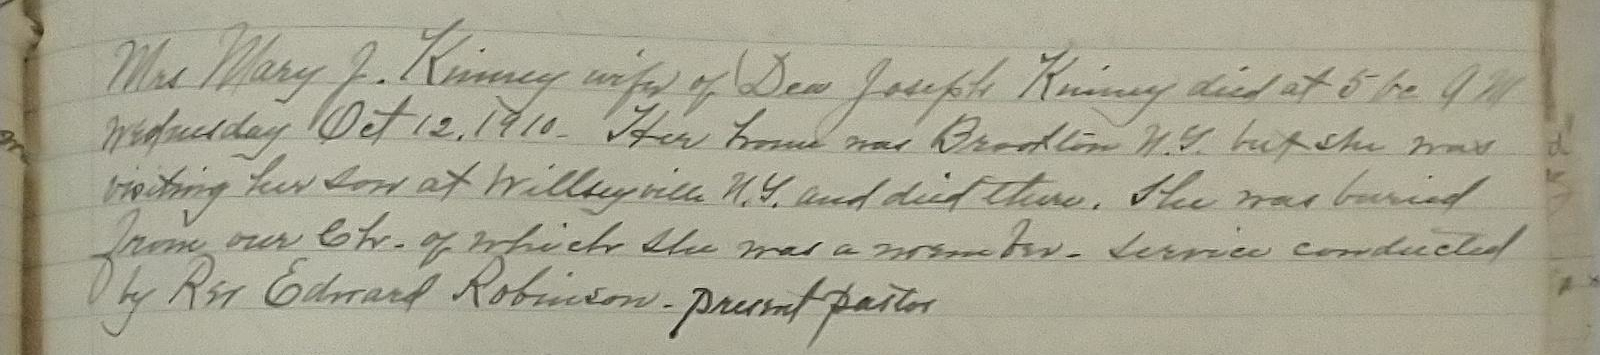 Mrs Mary J. Kinney wife of Dea Joseph Kinney died at 5 A M
Wednesday Oct 12, 1910 - Her home was Brookton N.Y. but she was
visiting her son at Willseyville N.Y. and died there. She was buried
from our Ch. of which she was a member - Service conducted
by Rev Edward Robinson - present pastor